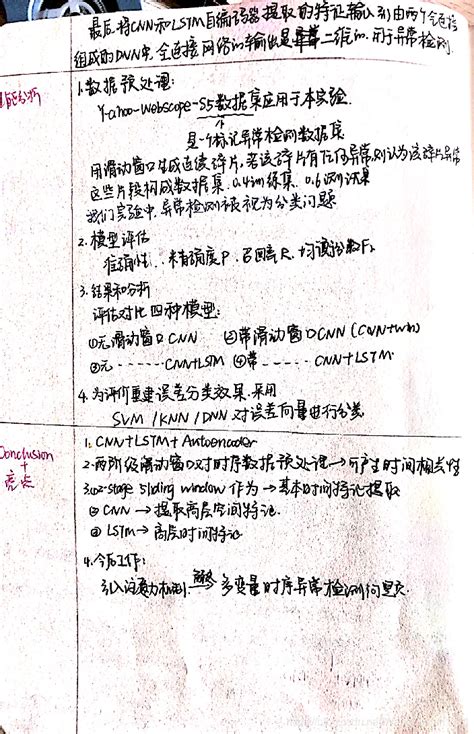 最后,将CNN和LSTM自编码器提取的特征输入到由两个全连接
组成的DNN中,全连接网络的输出是二维的,用于异常检测
性能分析
1.数据预处理:
Yahoo-Webscope-S5数据集应用于本实验.
是一个标记异常检测数据集
用滑动窗口生成连续碎片,若该碎片有任何异常,则认为该碎片异常
这些片段构成数据集. 0.4训练集. 0.6测试集
我们实验中,异常检测被视为分类问题
2.模型评估
准确性、精确度P、召回率R、均衡分数F1
3.结果和分析
评估对比四种模型:
①无滑动窗口CNN ②带滑动窗口CNN (CNN+win)
③无……CNN+LSTM ④带……CNN+LSTM.
4.为评价重建误差分类效果,采用
SVM/KNN/DNN 对误差向量进行分类
Conclusion
+
亮点
1. CNN+LSTM+Autoencoder
2.两阶段滑动窗口对时序数据预处理→可产生时间相关性
3.①2-stage sliding window 作为→基本时间特征提取
② CNN → 提取高层空间特征.
③ LSTM→高层时间特征
4.今后工作:
引入注意力机制 解决 多变量时序异常检测问题.